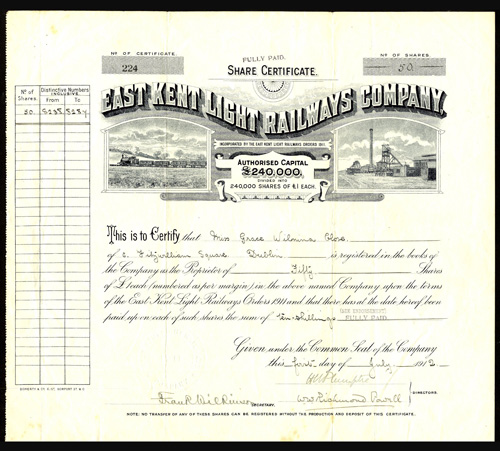 No OF CERTIFICATE.
224
FULLY PAID.
SHARE CERTIFICATE.
No OF SHARES.
50.
EAST KENT LIGHT RAILWAYS COMPANY.
INCORPORATED BY THE EAST KENT LIGHT RAILWAYS ORDERS 1911.
AUTHORISED CAPITAL
£240,000.
DIVIDED INTO
240,000 SHARES OF £1 EACH.
No of Shares.
Distinctive Numbers INCLUSIVE.
From To
50.
This is to Certify that Miss Grace Wilmina Close.
of Fitzwilliam Square Dublin is registered in the books of
the Company as the Proprietor of Fifty Shares
of £1 each (numbered as per margin) in the above named Company upon the terms
of the East Kent Light Railways Orders 1911 and that there has at the date hereof been
paid up on each of such shares the sum of ten shillings
SEE ENDORSEMENT
FULLY PAID
Given under the Common Seal of the Company
this first day of July 1912
DIRECTORS.
W. Richmond Powell
SECRETARY.
NOTE: NO TRANSFER OF ANY OF THESE SHARES CAN BE REGISTERED WITHOUT THE PRODUCTION AND DEPOSIT OF THIS CERTIFICATE.